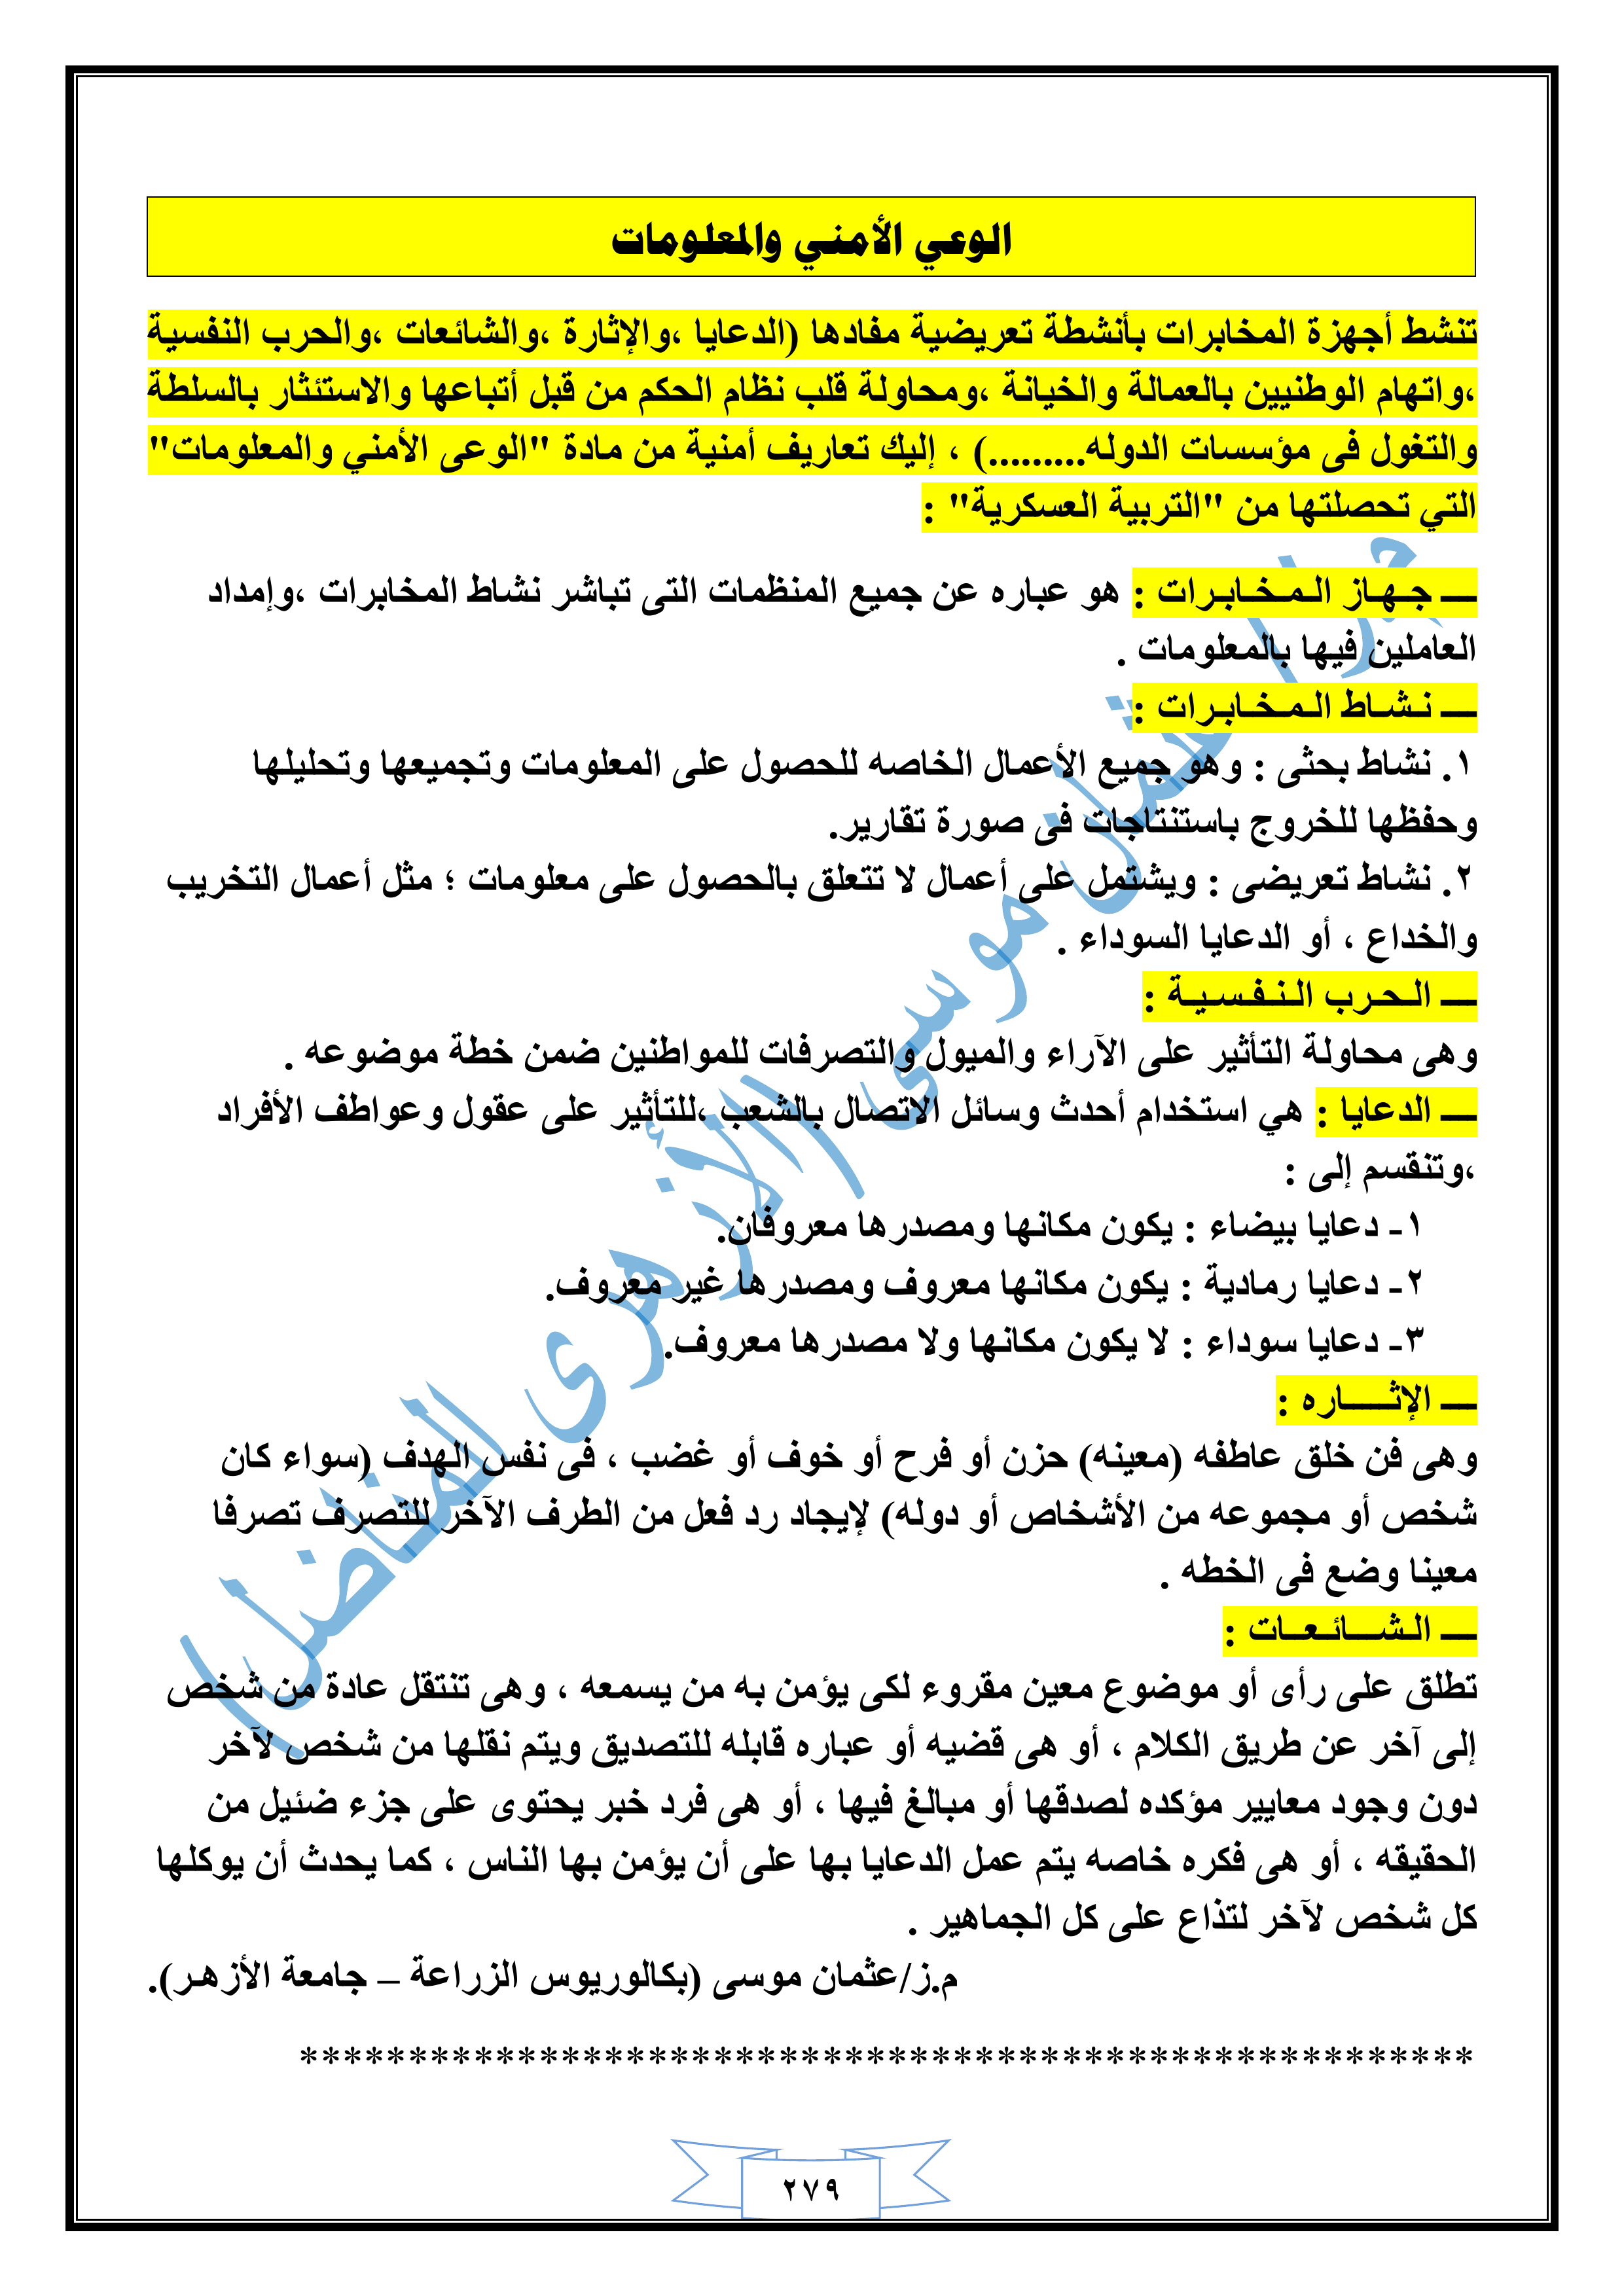 الوعي الأمني والمعلومات
تنشط أجهزة المخابرات بأنشطة تعريضية مفادها (الدعايا ،والإثارة ،والشائعات ،والحرب النفسية
،واتهام الوطنيين بالعمالة والخيانة ،ومحاولة قلب نظام الحكم من قبل أتباعها والاستئثار بالسلطة
والتغول فى مؤسسات الدوله.........) ، إليك تعاريف أمنية من مادة "الوعى الأمني والمعلومات"
التي تحصلتها من "التربية العسكرية" :
ــ جـهـاز الـمـخـابـرات : هو عباره عن جميع المنظمات التى تباشر نشاط المخابرات ،وإمداد
العاملين فيها بالمعلومات .
ــ نـشـاط الـمـخـابـرات :
١. نشاط بحثى : وهو جميع الأعمال الخاصه للحصول على المعلومات وتجميعها وتحليلها
وحفظها للخروج باستنتاجات فى صورة تقارير.
٢. نشاط تعريضى : ويشتمل على أعمال لا تتعلق بالحصول على معلومات ؛ مثل أعمال التخريب
والخداع ، أو الدعايا السوداء .
ــ الـحـرب الـنـفـسـيـة :
وهى محاولة التأثير على الآراء والميول والتصرفات للمواطنين ضمن خطة موضوعه .
ــ الدعايا : هي استخدام أحدث وسائل الاتصال بالشعب ،للتأثير على عقول وعواطف الأفراد
،وتنقسم إلى :
١- دعايا بيضاء : يكون مكانها ومصدرها معروفان.
٢- دعايا رمادية : يكون مكانها معروف ومصدرها غير معروف.
٣- دعايا سوداء : لا يكون مكانها ولا مصدرها معروف.
ــ الإثـــــاره :
وهى فن خلق عاطفه (معينه) حزن أو فرح أو خوف أو غضب ، فى نفس الهدف (سواء كان
شخص أو مجموعه من الأشخاص أو دوله) لإيجاد رد فعل من الطرف الآخر للتصرف تصرفا
معينا وضع فى الخطه .
ــ الـشـــائـعــات :
تطلق على رأى أو موضوع معين مقروء لكى يؤمن به من يسمعه ، وهى تنتقل عادة من شخص
إلى آخر عن طريق الكلام ، أو هى قضيه أو عباره قابله للتصديق ويتم نقلها من شخص لآخر
دون وجود معايير مؤكده لصدقها أو مبالغ فيها ، أو هى فرد خبر يحتوى على جزء ضئيل من
الحقيقه ، أو هى فكره خاصه يتم عمل الدعايا بها على أن يؤمن بها الناس ، كما يحدث أن يوكلها
كل شخص لآخر لتذاع على كل الجماهير .
م.ز/عثمان موسى (بكالوريوس الزراعة – جامعة الأزهـر).
******************************************************
٢٧٩
عثمان موسى (الأزهرى المناضل)